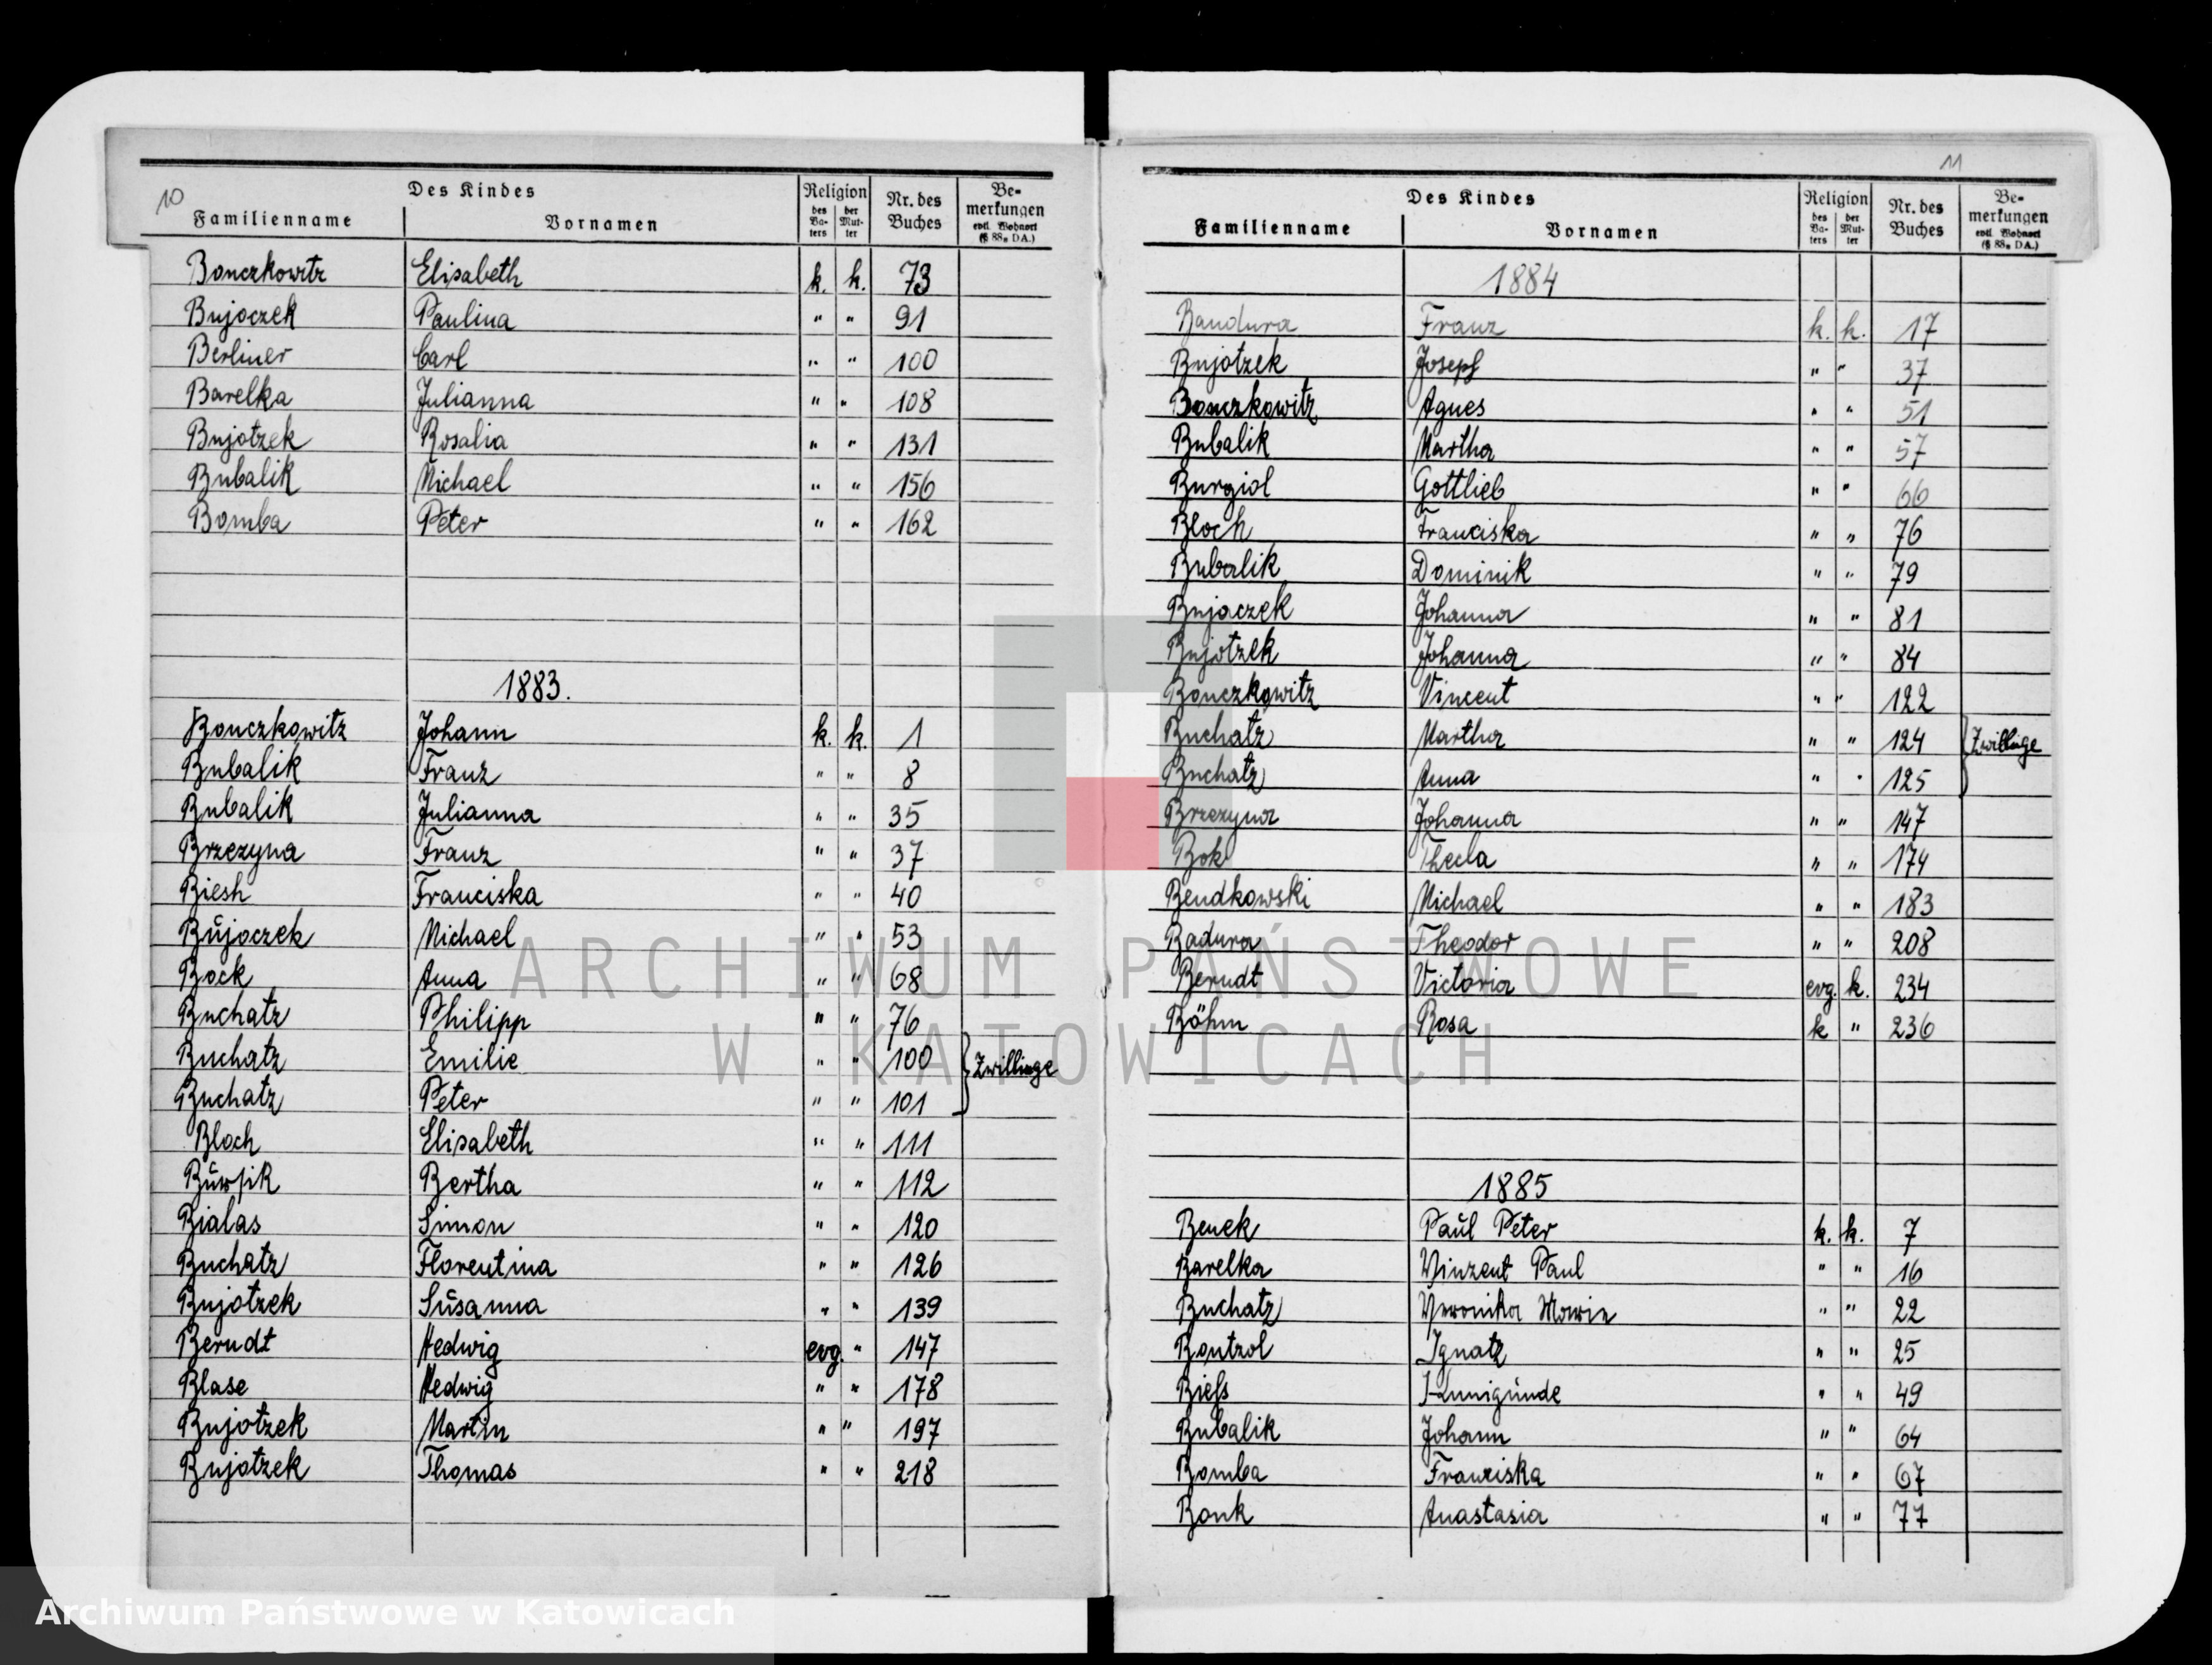 10
Des Kindes
Religion
Nr. des Buches
Be-
merkungen
evtl. Wohnort
(§ 88₈ DA.)
Familienname Vornamen des Va-ters der Mut-ter
Bonczkowitz Elisabeth k. k. 73
Bujoczek Paulina " " 91
Berliner Carl " " 100
Barelka Julianna " " 108
Bujotzek Rosalia " " 131
Bubalik Michael " " 156
Bomba Peter " " 162
1883.
Bonczkowitz Johann k. k. 1
Bubalik Franz " " 8
Bubalik Julianna " " 35
Brzezyna Franz " " 37
Biesh Franciska " " 40
Bujoczek Michael " " 53
Bock Anna " " 68
Buchatz Philipp " " 76
Buchatz Emilie " " 100 Zwillinge
Buchatz Peter " " 101
Bloch Elisabeth " " 111
Bertha " " 112
Bialas Simon " " 120
Buchatz Florentina " " 126
Bujotzek Susanna " " 139
Berndt Hedwig evg. " 147
Blase Hedwig " " 178
Bujotzek Martin " " 197
Bujotzek Thomas " " 218
11
Des Kindes
Religion
Nr. des Buches
Be-
merkungen
evtl. Wohnort
(§ 88₈ DA.)
Familienname Vornamen des Va-ters der Mut-ter
1884
Bandura Franz k. k. 17
Bujotzek Josef " " 37
Bonczkowitz Agnes " " 51
Bubalik Martha " " 57
Burgiol Gottlieb " " 66
Bloch Franciska " " 76
Bubalik Dominik " " 79
Bujaczek Johanna " " 81
Bujotzek Johanna " " 84
Bonczkowitz Vincent " " 122
Buchatz Martha " " 124 Zwillinge
Buchatz Anna " " 125
Brzezyna Johanna " " 147
Bok Thecla " " 174
Bendkowski Michael " " 183
Badura Theodor " " 208
Berndt Victoria evg. k. 234
Böhm Rosa k " 236
1885
Benek Paul Peter k. k. 7
Barelka Vinzent Paul " " 16
Buchatz Veronika Marie " " 22
Bontzol Ignatz " " 25
Biess Kunnigunde " " 49
Bubalik Johann " " 64
Bomba Franziska " " 67
Bonk Anastasia " " 77
ARCHIWUM PAŃSTWOWE
W KATOWICACH
Archiwum Państwowe w Katowicach